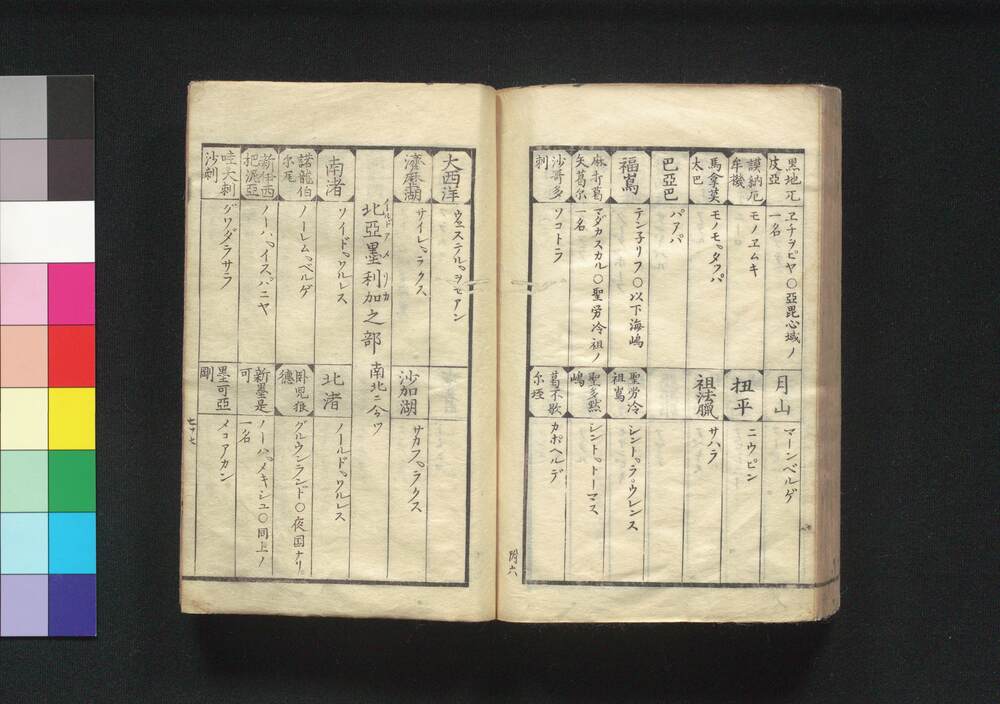 黒地兀
皮亞
ヱチヲピヤ〇亞毘心域ノ
一名
月山
マーンベルゲ
謨納兀
牟機
モノヱムキ
扭平
ニウピン
馬拿莫
太巴
モノモ。タアパ
祖法臘
サハラ
巴亞巴
パアパ
福嶌
テン子リフ〇以下海嶋
聖労冷
祖嶌
シント。ラ。ウレンス
麻打葛
矢葛尓
マダカスカル〇聖労冷祖ノ
一名
聖多黙
嶋
シント。トーマス
沙哥多
剌
ソコトラ
葛不歌
尓埡
カボヘルデ
大西洋
ウェステル。ヲセアン
サイレ。ラクス
沙加湖
サカフ。ラクス
北亞墨利加之部
イルドアメリカ
南北ニ分ツ
南渚
ソイド。ワルレス
北渚
ノールド。ワルレス
諾龍伯
尓尾
ノーレム。ベルゲ
臥兕狼
德
グルウンランド〇夜国ナリ
新伊西
把泥亞
ノーハ。イスパニヤ
新墨是
可
ノーハ。メキシユ〇同上ノ
一名
哇大剌
沙剌
グワダラサラ
墨可亞
剛
メコアカン